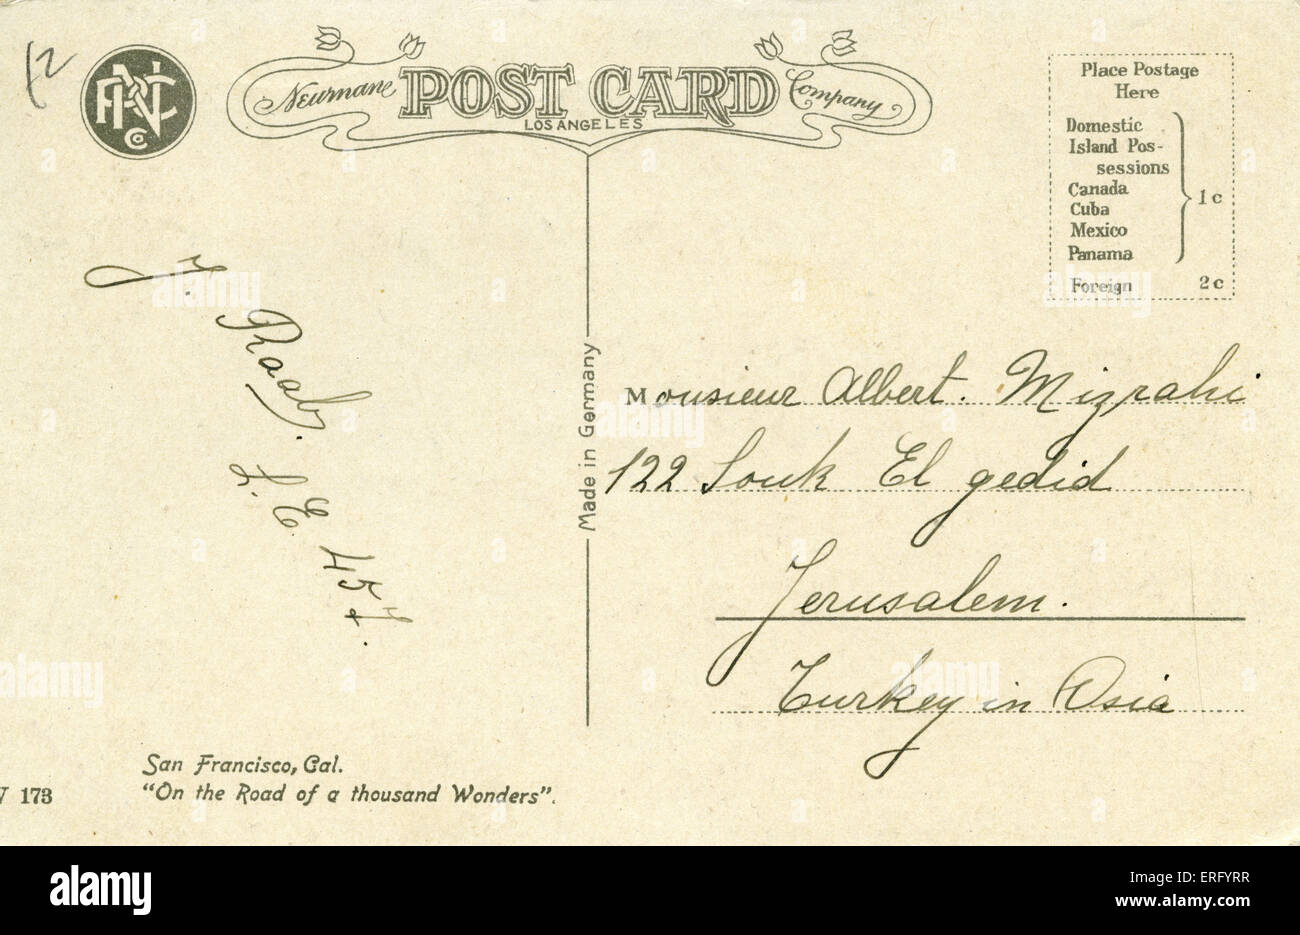 12
PNC
Co
Newmane POST CARD Company
LOS ANGELES
Place Postage
Here
Domestic
Island Pos-
sessions
Canada
Cuba
Mexico
Panama
1c
Foreign 2c
J. Raab.
L.E. 457.
Made in Germany
Monsieur Albert. Mizrahi
122 Souk El gedid
Jerusalem.
Turkey in Asia
San Francisco, Cal.
"On the Road of a thousand Wonders".
V 173
alamy
alamy stock photo
ERFYRR
www.alamy.com